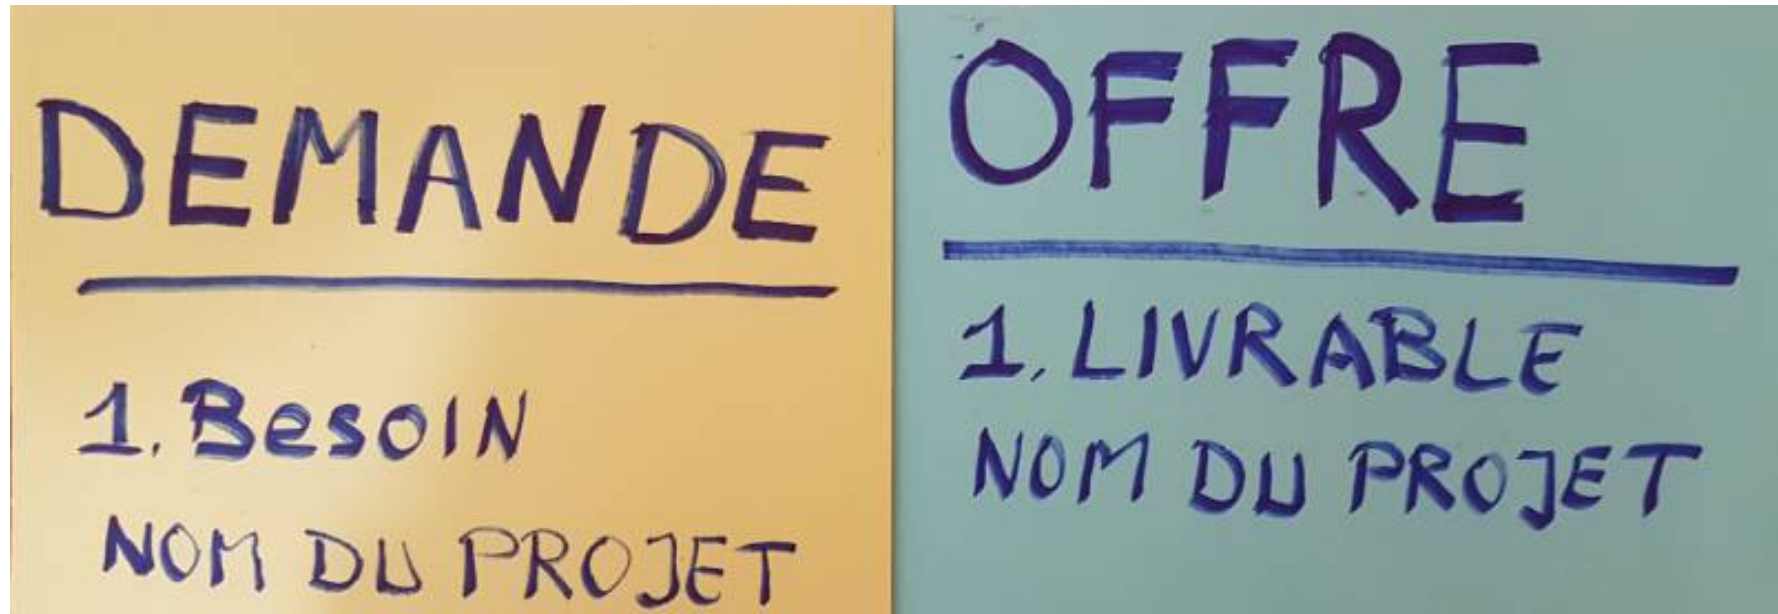 DEMANDE
1. Besoin
NOM DU PROJET
OFFRE
1. LIVRABLE
NOM DU PROJET